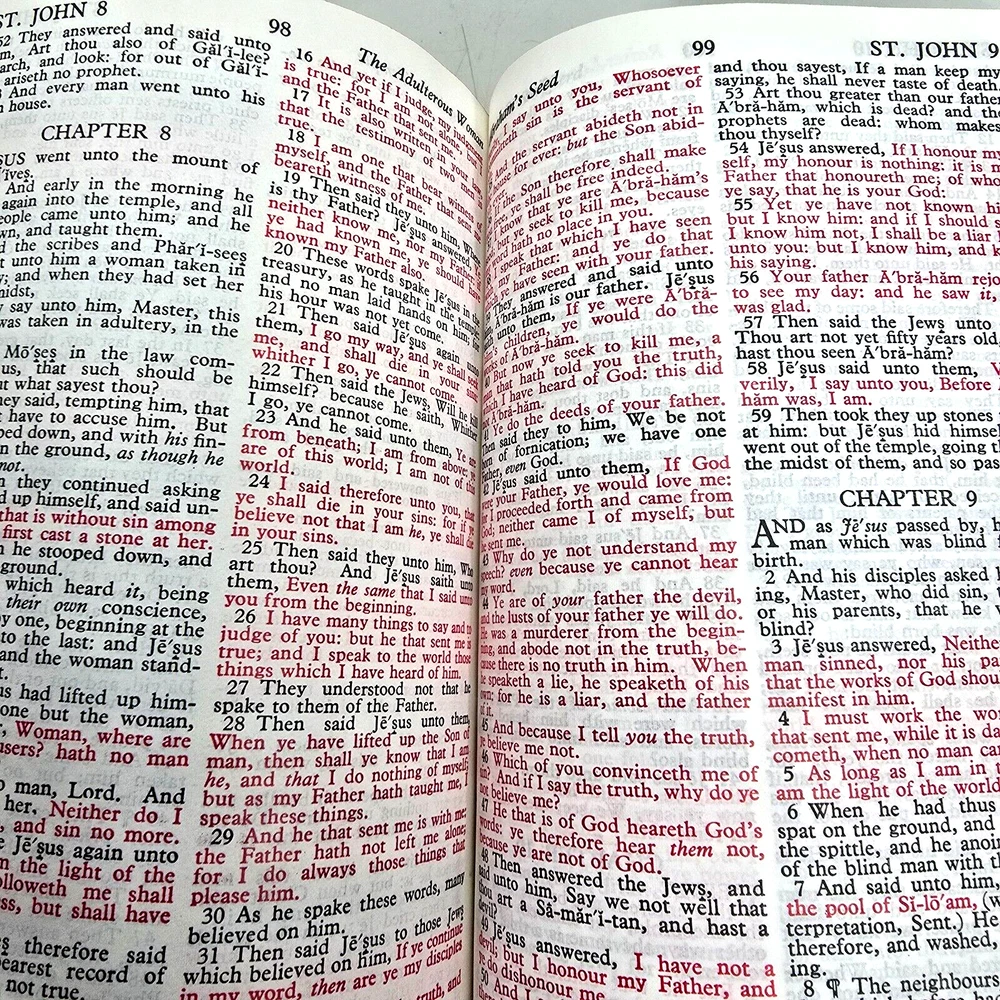 ST. JOHN 8
52 They answered and said unto
m, Art thou also of Găl´ĭ-lee?
arch, and look: for out of Găl´ĭ-
ariseth no prophet.
And every man went unto his
n house.
CHAPTER 8
SUS went unto the mount of
ives.
And early in the morning he
again into the temple, and all
eople came unto him; and he
wn, and taught them.
d the scribes and Phăr´ĭ-sees
t unto him a woman taken in
y; and when they had set her
midst,
y say unto him, Master, this
was taken in adultery, in the
Mō´ṣeṣ in the law com-
us, that such should be
ut what sayest thou?
they said, tempting him, that
t have to accuse him. But
ped down, and with his fin-
n the ground, as though he
not.
n they continued asking
d up himself, and said un-
that is without sin among
first cast a stone at her.
n he stooped down, and
ground.
which heard it, being
their own conscience,
y one, beginning at the
to the last: and Jē´ṣus
and the woman stand-
t.
us had lifted up him-
one but the woman,
r, Woman, where are
users? hath no man
o man, Lord. And
her, Neither do I
, and sin no more.
e Jē´ṣus again unto
m the light of the
olloweth me shall
ess, but shall have
ṣ therefore said
earest record of
not true.
98
The Adulterous Woman
16 And yet if I judge, my judgment
is true: for I am not alone, but I
and the Father that sent me.
17 It is also written in your law,
that the testimony of two men is
true.
18 I am one that bear witness of
myself, and the Father that sent me
beareth witness of me.
19 Then said they unto him, Where
is thy Father? Jē´ṣus answered, Ye
neither know me, nor my Father: if
ye had known me, ye should have
known my Father also.
20 These words spake Jē´ṣus in the
treasury, as he taught in the temple:
and no man laid hands on him; for
his hour was not yet come.
21 Then said Jē´ṣus again unto
them, I go my way, and ye shall seek
me, and shall die in your sins:
whither I go, ye cannot come.
22 Then said the Jewṣ, Will he kill
himself? because he saith, Whither
I go, ye cannot come.
23 And he said unto them, Ye are
from beneath; I am from above: ye
are of this world; I am not of this
world.
24 I said therefore unto you, that
ye shall die in your sins: for if ye
believe not that I am he, ye shall die
in your sins.
25 Then said they unto him, Who
art thou? And Jē´ṣus saith unto
them, Even the same that I said unto
you from the beginning.
26 I have many things to say and to
judge of you: but he that sent me is
true; and I speak to the world those
things which I have heard of him.
27 They understood not that he
spake to them of the Father.
28 Then said Jē´ṣus unto them,
When ye have lifted up the Son of
man, then shall ye know that I am
he, and that I do nothing of myself;
but as my Father hath taught me, I
speak these things.
29 And he that sent me is with me:
the Father hath not left me alone;
for I do always those things that
please him.
30 As he spake these words, many
believed on him.
31 Then said Jē´ṣus to those Jewṣ
which believed on him, If ye continue
in my word, then are ye my disciples
truth, and
99
ham's Seed
say unto you, Whosoever
eth sin is the servant of
And the servant abideth not in
house for ever: but the Son abid-
Son therefore shall make
free, ye shall be free indeed.
know that ye are Ā´brā-hăm's
ye seek to kill me, because
hath no place in you.
speak that which I have seen
Father: and ye do that
ye have seen with your father.
They answered and said unto
Ā´brā-hăm is our father. Jē´ṣus
unto them, If ye were Ā´brā-
children, ye would do the
works of Ā´brā-hăm.
But now ye seek to kill me, a
that hath told you the truth,
I have heard of God: this did
Ā´brā-hăm.
41 Ye do the deeds of your father.
said they to him, We be not
of fornication; we have one
Father, even God.
42 Jē´ṣus said unto them, If God
your Father, ye would love me:
I proceeded forth and came from
God; neither came I of myself, but
he sent me.
43 Why do ye not understand my
speech? even because ye cannot hear
my word.
44 Ye are of your father the devil,
and the lusts of your father ye will do.
He was a murderer from the begin-
ning, and abode not in the truth, be-
cause there is no truth in him. When
he speaketh a lie, he speaketh of his
own: for he is a liar, and the father
of it.
45 And because I tell you the truth,
ye believe me not.
46 Which of you convinceth me of
sin? And if I say the truth, why do ye
not believe me?
47 He that is of God heareth God's
words: ye therefore hear them not,
because ye are not of God.
48 Then answered the Jewṣ, and
said unto him, Say we not well that
thou art a Să-măr´ĭ-tan, and hast a
devil?
49 Jē´ṣus answered, I have not a
devil; but I honour my Father, and
ye do dishonour me.
50 And I
ST. JOHN 9
and thou sayest, If a man keep my
saying, he shall never taste of death.
53 Art thou greater than our father
Ā´brā-hăm, which is dead? and the
prophets are dead: whom makes
thou thyself?
54 Jē´ṣus answered, If I honour my
self, my honour is nothing: it is m
Father that honoureth me; of who
ye say, that he is your God:
55 Yet ye have not known hi
but I know him: and if I should s
I know him not, I shall be a liar
unto you: but I know him, and k
his saying.
56 Your father Ā´brā-hăm rejo
to see my day: and he saw it,
was glad.
57 Then said the Jewṣ unto
Thou art not yet fifty years old,
hast thou seen Ā´brā-hăm?
58 Jē´ṣus said unto them, V
verily, I say unto you, Before
hăm was, I am.
59 Then took they up stones
at him: but Jē´ṣus hid himsel
went out of the temple, going th
the midst of them, and so pas
CHAPTER 9
AND as Jē´ṣus passed by, h
man which was blind f
birth.
2 And his disciples asked h
ing, Master, who did sin, t
or his parents, that he
blind?
3 Jē´ṣus answered, Neithe
man sinned, nor his pa
that the works of God shou
manifest in him.
4 I must work the wo
that sent me, while it is da
cometh, when no man ca
5 As long as I am in t
am the light of the world
6 When he had thus
spat on the ground, and
the spittle, and he anoin
of the blind man with th
7 And said unto him,
the pool of Sī-lō´am, (w
terpretation, Sent.) He
therefore, and washed,
ing.
8 ¶ The neighbours